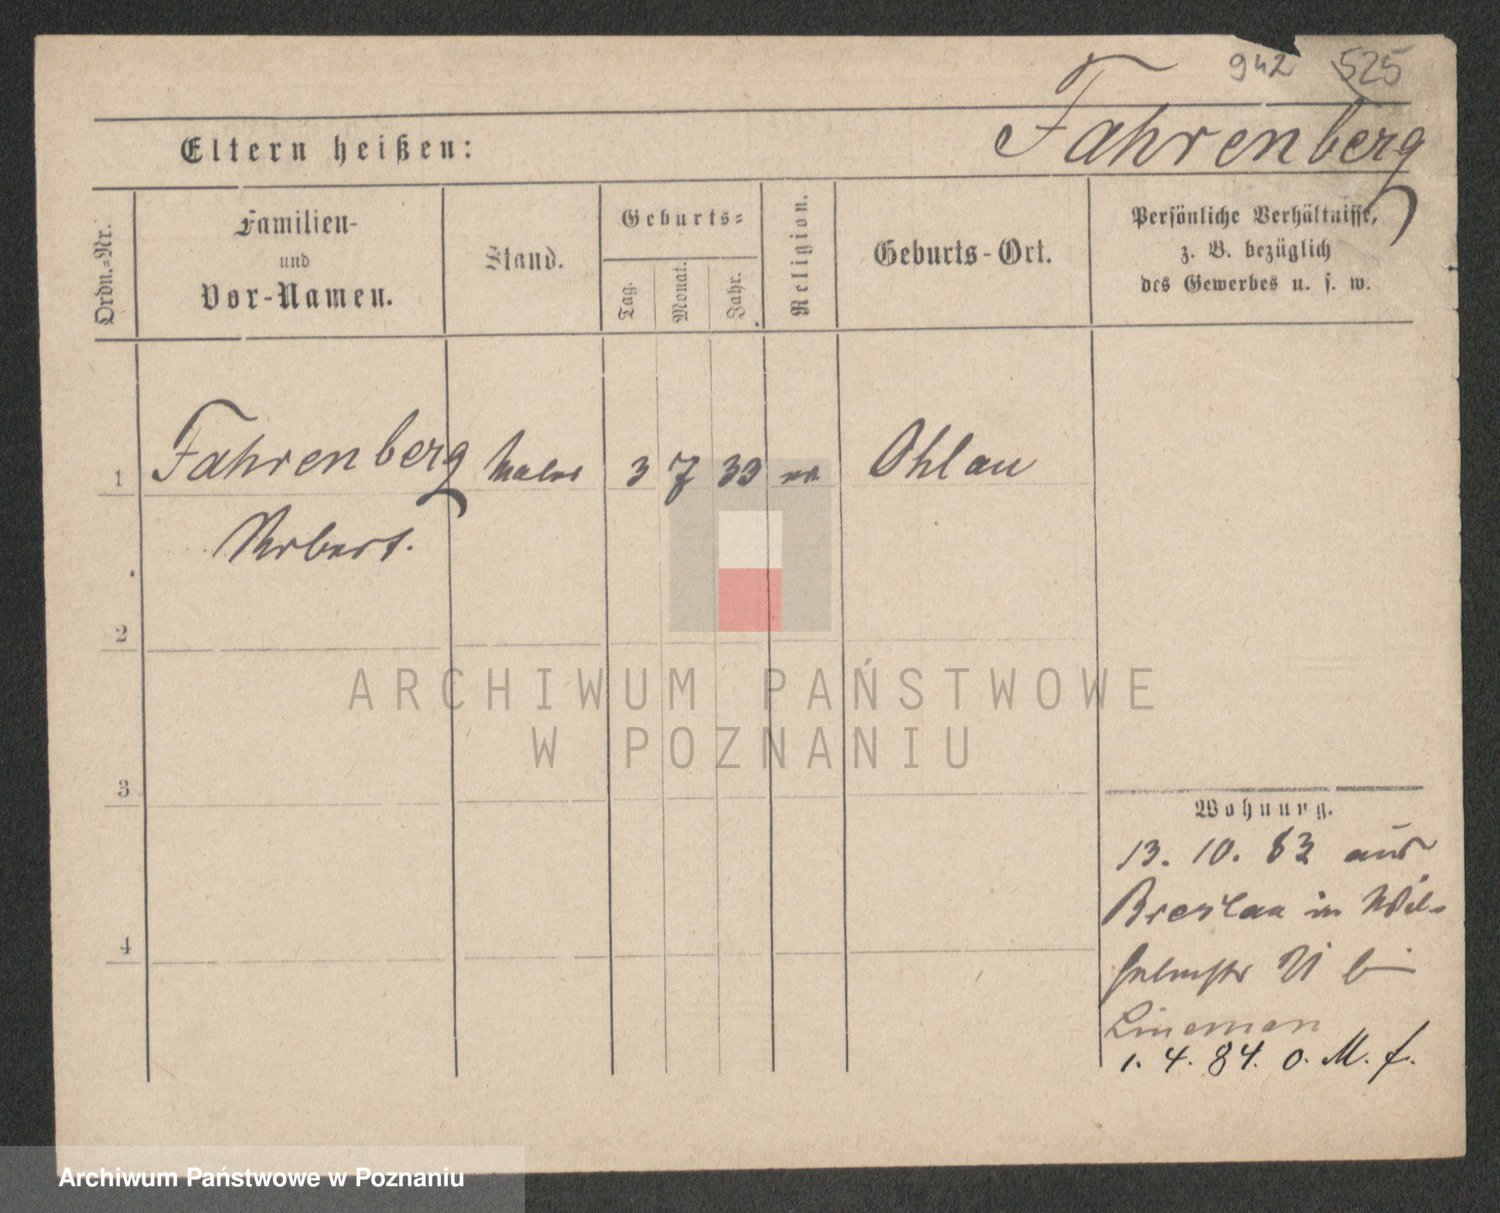 942 525
Fahrenberg
Eltern heißen:
Ordn.-Nr.
Familien-
und
Vor-Namen.
Stand.
Geburts-
Tag.
Monat.
Jahr.
Religion.
Geburts-Ort.
Persönliche Verhältnisse,
z. B. bezüglich
des Gewerbes u. s. w.
1 Fahrenberg Maler 3 7 33 Ohlau
2
3
4
ARCHIWUM PAŃSTWOWE
W POZNANIU
Wohnung.
13. 10. 83 aus
Breslau in Wil-
helmstr bei
Lineman
1. 4. 84. o. M. f.
Archiwum Państwowe w Poznaniu